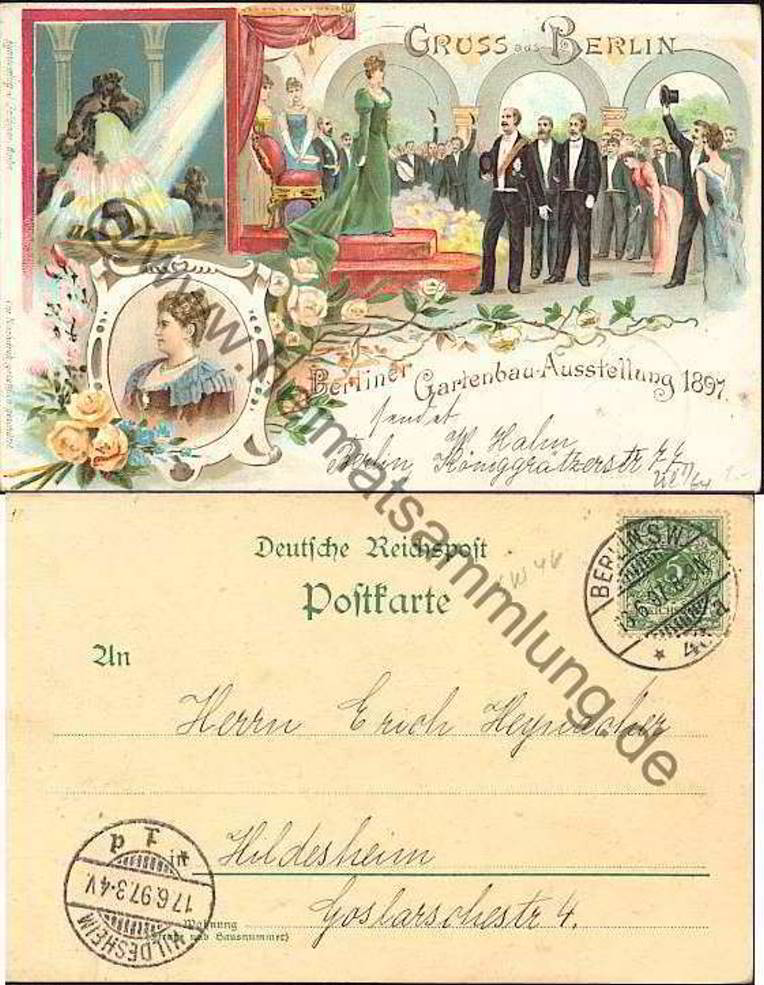 GRUSS aus BERLIN
Berliner Gartenbau-Ausstellung 1897.
sendet
Hahn
Berlin, Königgrätzerstr 77
© www.heimatsammlung.de
Deutsche Reichspost
Postkarte
An
BERLIN S.W.
Herrn Erich Heynacher
in Hildesheim
Goslarschestr 4.
Wohnung
(Straße und Hausnummer)
HILDESHEIM
17.6.97.3-4V.